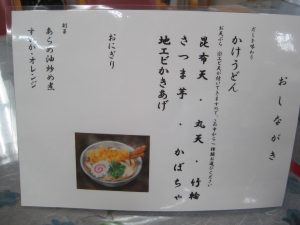 おしながき
だしを味わう
かけうどん
昆布天・丸天・竹輪
さつま芋・かぼちゃ
地エビかきあげ
おにぎり
副菜
あらめ油炒め煮
すいか・オレンジ